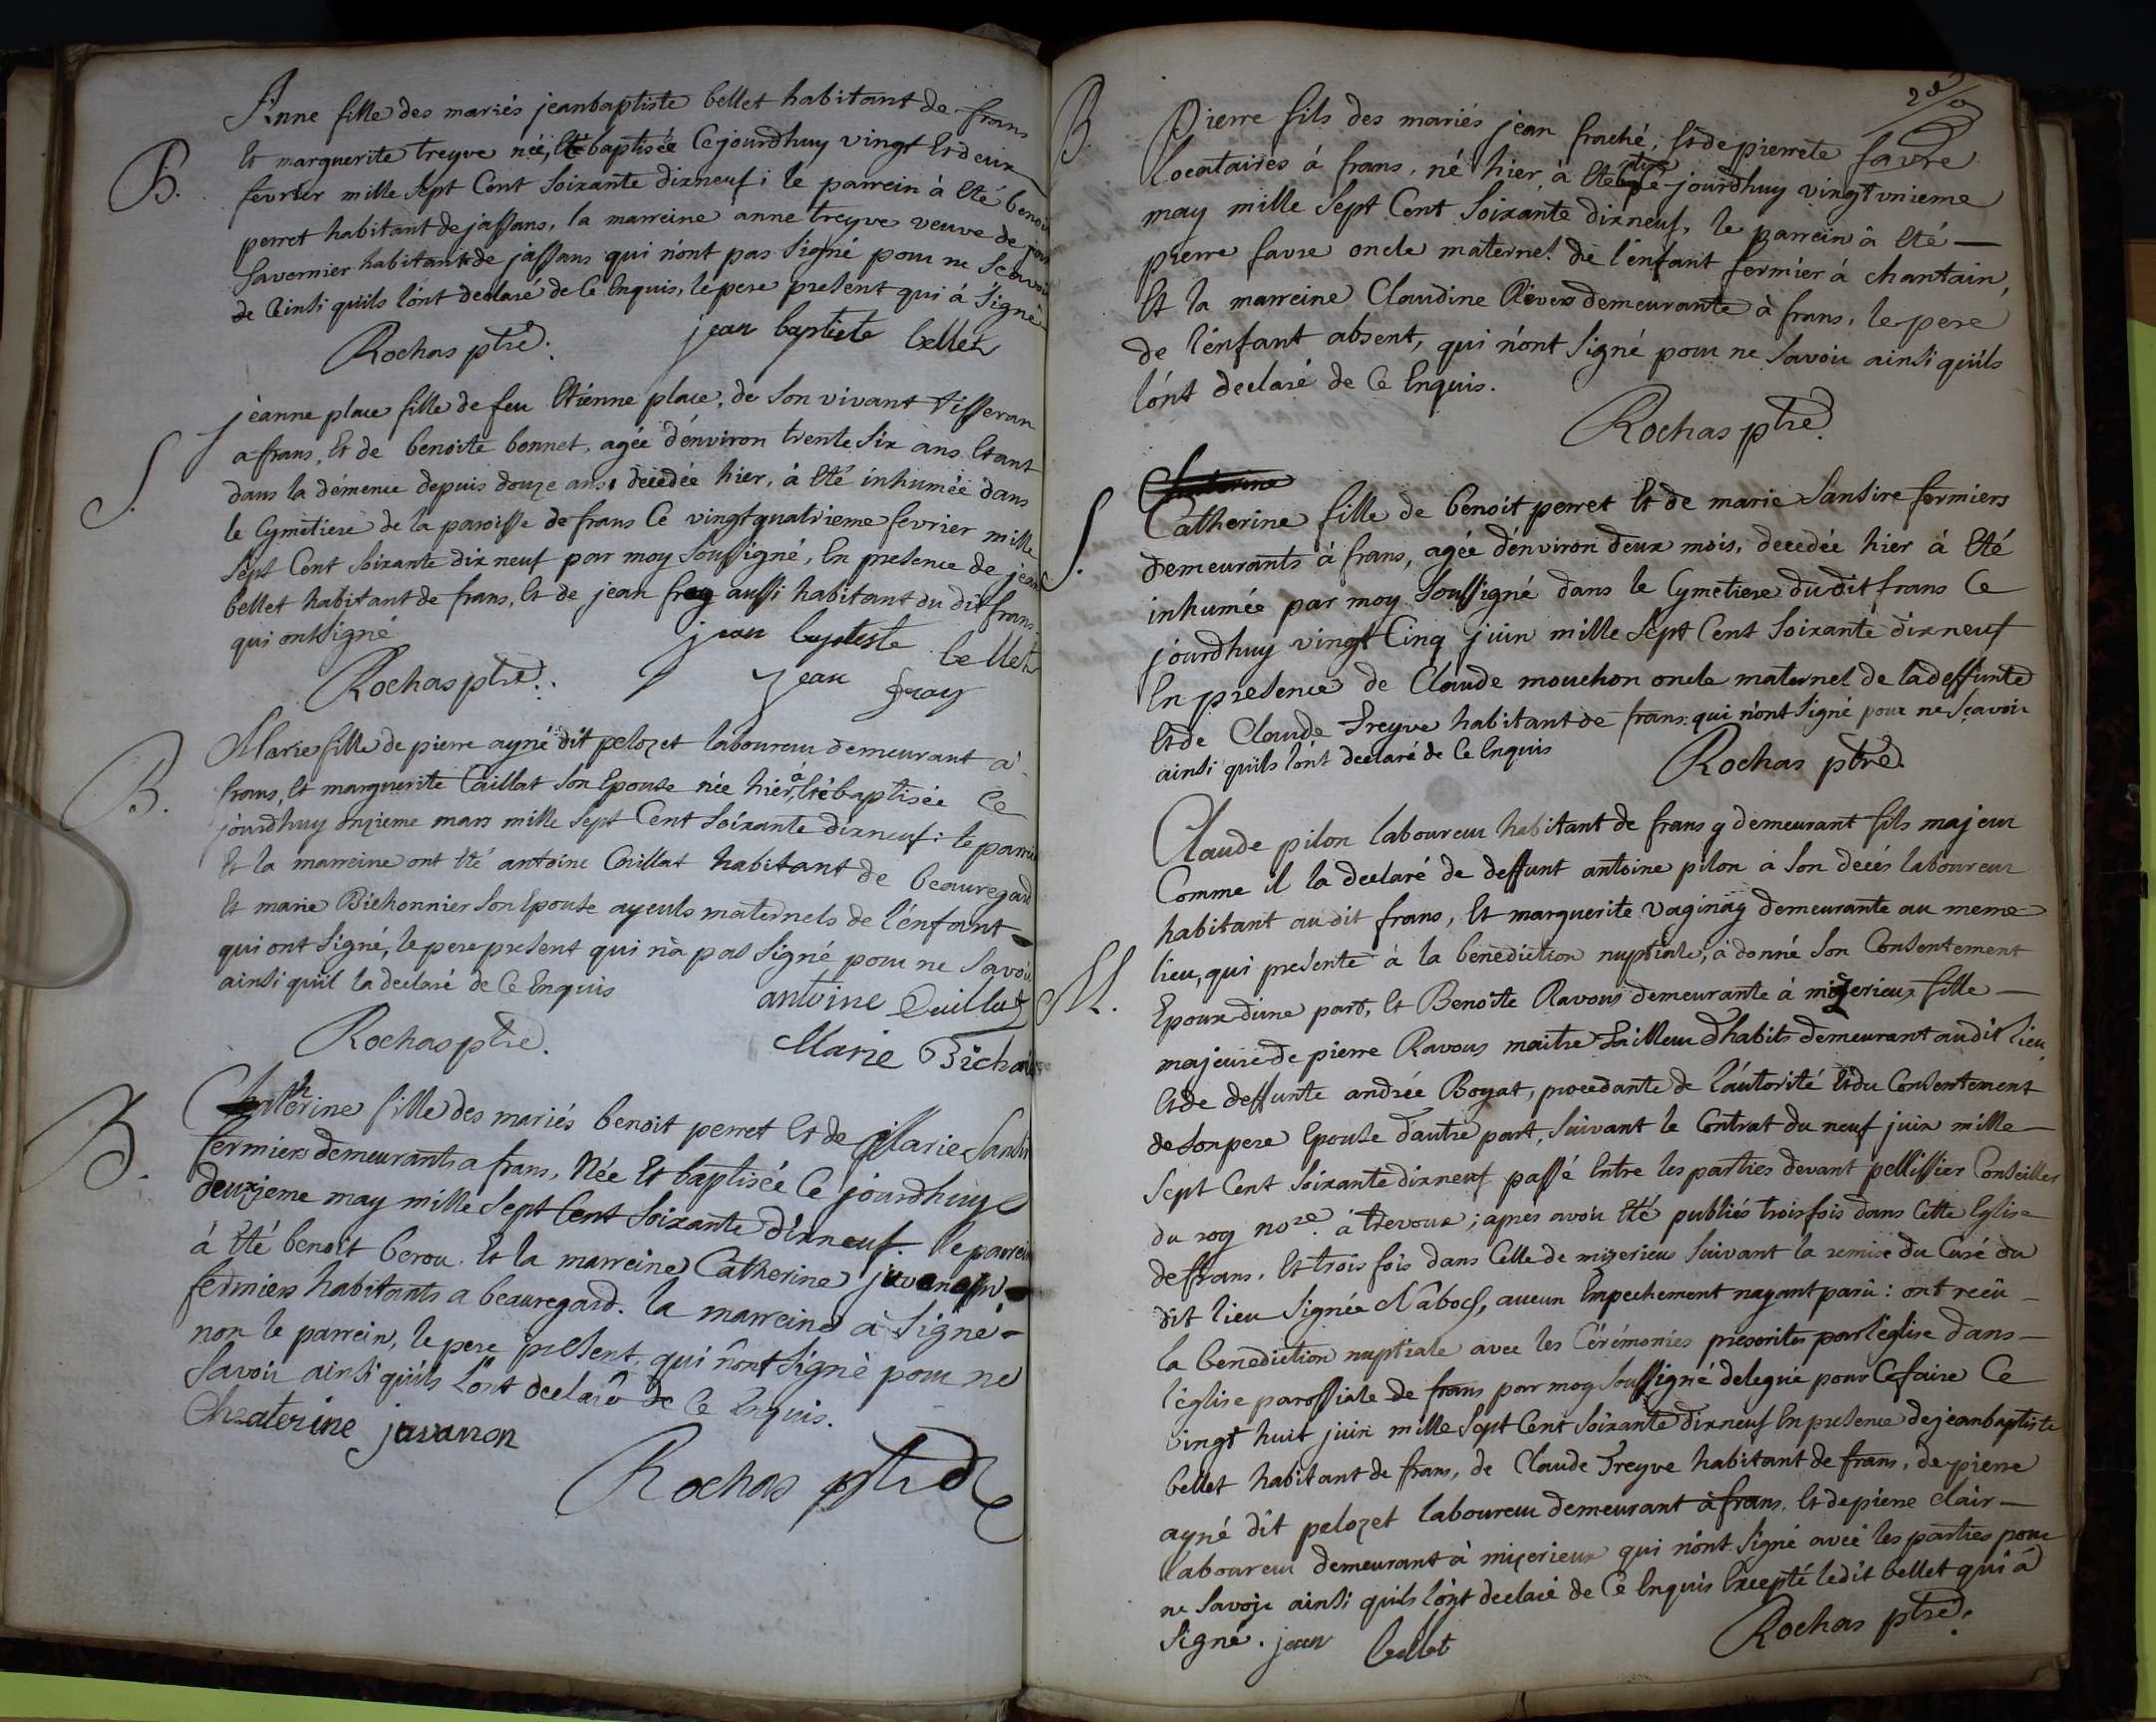 Anne fille des mariés jeanbaptiste bellet habitant de frans
B.
Et marguerite treyve née, Eté baptisée Cejourdhuy vingt Et deux
fevrier mille sept Cent soixante dixneuf; le parrein à Eté benoit
perret habitant de jassans, la marreine anne treyve veuve de jean
Savernier habitante de jassans qui n'ont pas signé pour ne Scavoir
de Ainsi quils lónt declaré de Ce Enquis, le pere present qui á signé
Rochas ptre. jean baptiste bellet
jeanne place fille de feu Etienne place, de son vivant tisseran
S.
a frans, Et de benoite bonnet, agée dénviron trente six ans Etant
dans la démence depuis douze ans, decedée hier, à Eté inhumée dans
le Cymetiere de la paroisse de frans Ce vingtquatrieme fevrier mille
sept Cent soixante dix neuf par moy soussigné, En presence de jean
bellet habitant de frans, Et de jean fray aussi habitant du dit frans
qui ont signé
jean baptiste bellet
Rochas ptre. jean fray
B.
Marie fille de pierre ayné dit pelozet laboureur demeurant à
frans, Et marguerite Caillat son Epouse née hier, à Eté baptisée Ce
jourdhuy onzieme mars mille sept Cent soixante dixneuf: le parrein
Et la marreine ont Eté antoine Caillat habitant de beauregard
Et marie Bichonnier son Epouse ayeuls maternels de l'énfant
qui ont signé, le pere present qui n'à pas signé pour ne savoir
ainsi quil la declaré de Ce Enquis
antoine Caillat
Rochas ptre. Marie Bichon
B.
Catherine fille des mariés benoit perret Et de Marie Sansi
fermiers demeurants a frans, Née Et baptisée Ce jourdhuy
deuxieme may mille sept Cent soixante dixneuf. le parrein
à Eté benoit berou. Et la marreine Catherine juvanon
fermiers habitants a beauregard. la marreine à signé
non le parrein, le pere present, qui n'ont signé pour ne
savoir ainsi quils l'ont declaré de Ce Enquis.
Chaterine javanon
Rochas ptre
B.
Pierre fils des mariés jean fraché, Et de pierrete favre
locataires á frans, né hier, à Eté baptisé Ce jourdhuy vingtunieme
may mille sept Cent soixante dixneuf, le parrein à Eté
pierre favre oncle maternel de l'énfant fermier á chantain,
Et la marreine Claudine Rivers demeurante à frans, le pere
de l'énfant absent, qui n'ónt signé pour ne savoir ainsi quils
lónt declaré de Ce Enquis.
Rochas ptre
S.
Catherine fille de benoit perret Et de marie Sansire fermiers
demeurants à frans, agée dénviron deux mois, decedée hier à Eté
inhumée par moy soussigné dans le Cymetiere du dit frans Ce
jourdhuy vingt Cinq juin mille sept Cent soixante dixneuf
En presence de Claude mouchon oncle maternel de la deffunte
Et de Claude Treyve habitant de frans qui n'ont signé pour ne sçavoir
ainsi quils lónt declaré de Ce Enquis Rochas ptre.
Claude pilon laboureur habitant de frans y demeurant fils majeur
Comme il la declaré de deffunt antoine pilon à son decés laboureur
habitant au dit frans, Et marguerite vaginay demeurante au meme
M.
lieu, qui presente à la bénédiction nuptiale, à donné son Consentement
Epoux dúne part, Et Benoîte Ravous demeurante à mizerieux fille
majeure de pierre Ravous maitre tailleur d'habits demeurant au dit lieu
Et de deffunte andrée Boyat, procedante de l'áutorité Et du Consentement
de son pere Epouse d'autre part, suivant le Contrat du neuf juin mille
sept Cent soixante dixneuf passé Entre les parties devant pellissier Conseiller
du roy nore. à trevoux; apres avoir Eté publiés trois fois dans Cette Eglise
de frans, Et trois fois dans Celle de mizerieux suivant la remise du Curé du
dit lieu signée aucun Empechement nayant parû: ont reçû
la benediction nuptiale avec les Cérémonies prescrites par l'église dans
l'église paroissiale de frans par moy soussigné delegué pour Ce faire Ce
vingt huit juin mille sept Cent soixante dixneuf En presence de jeanbaptiste
bellet habitant de frans, de Claude Treyve habitant de frans, de pierre
ayné dit pelozet laboureur demeurant à frans, Et de pierre Clair
laboureur demeurant à mizerieux qui n'ónt signé avec les parties pour
ne savoir ainsi quils lónt declaré de Ce Enquis Excepté ledit bellet qui à
signé. jean bellet Rochas ptre.